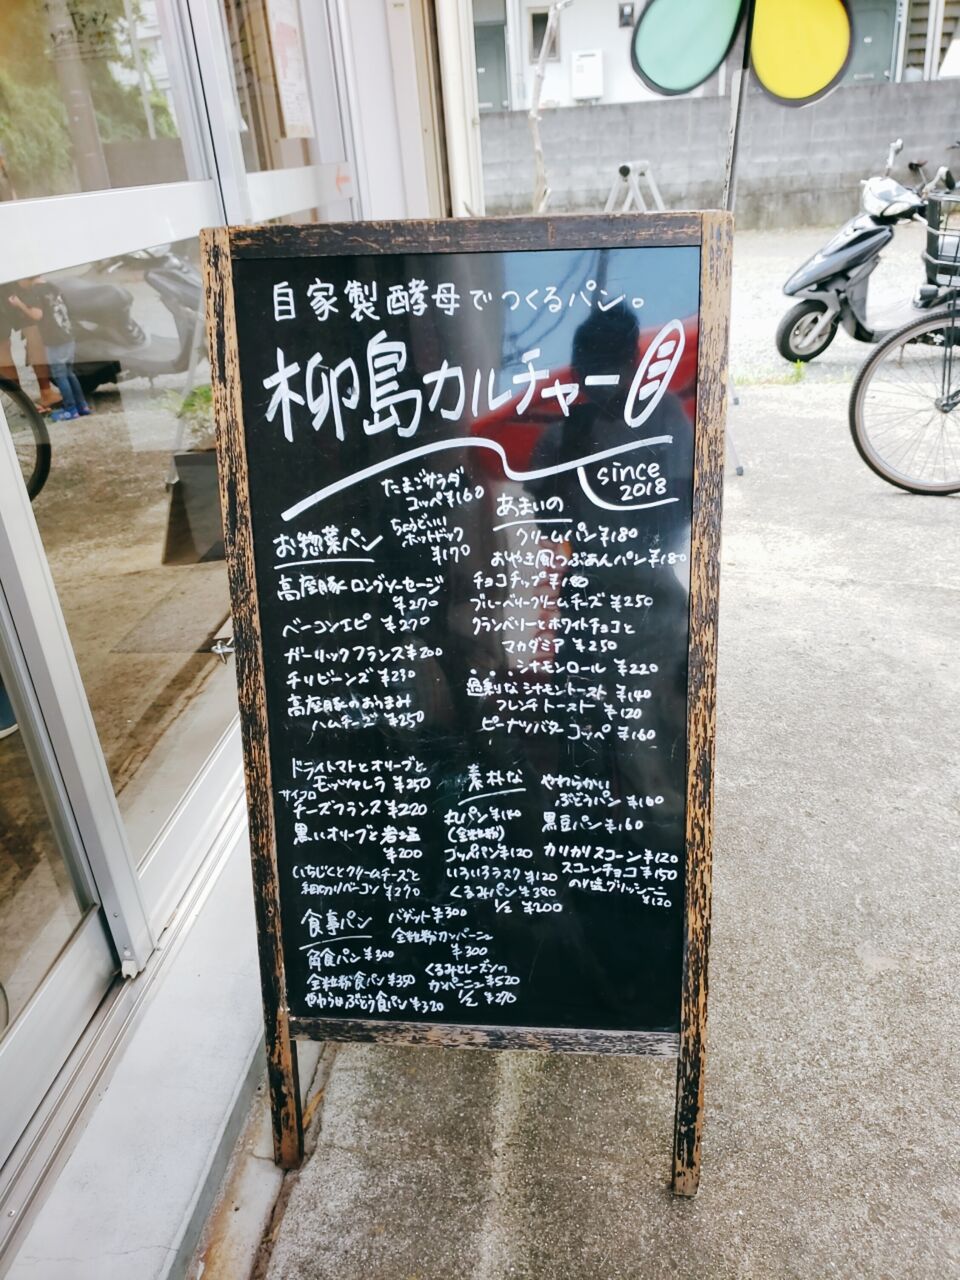 自家製酵母でつくるパン。
柳島カルチャー
since
2018
たまごサラダ
コッペ ¥160
ちょうどいい
ホットドック
¥170
お惣菜パン
高座豚ロングソーセージ
¥270
ベーコンエピ ¥270
ガーリックフランス ¥200
チリビーンズ ¥230
高座豚のあらまみ
ハムチーズ ¥250
ドライトマトとオリーブと
モッツァレラ ¥250
サイコロ
チーズフランス ¥220
黒いオリーブと岩塩
¥200
いちじくとクリームチーズと
細切りベーコン ¥270
あまいの
クリームパン ¥180
おやき風つぶあんパン ¥180
チョコチップ ¥180
ブルーベリークリームチーズ ¥250
クランベリーとホワイトチョコと
マカダミア ¥250
シナモンロール ¥220
過剰なシナモントースト ¥140
フレンチトースト ¥120
ピーナッツバターコッペ ¥160
素朴な
丸パン ¥140
(全粒粉)
コッペパン ¥120
いろいろラスク ¥120
くるみパン ¥380
1/2 ¥200
やわらかい
ぶどうパン ¥160
黒豆パン ¥160
カリカリスコーン ¥120
スコーンチョコ ¥150
のり塩グリッシーニ
¥120
食事パン
角食パン ¥300
全粒粉食パン ¥350
やわらかぶどう食パン ¥320
バゲット ¥300
全粒粉カンパーニュ
¥300
くるみとレーズンの
カンパーニュ ¥520
1/2 ¥270